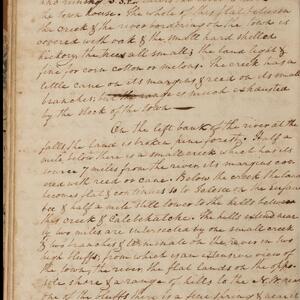 and running S.S.E.
the town house. The whole of this flat between
the creek & the river bordering on the town is
covered with oak & the small hard shelled
hickory, the trees all small; the land light &
fine for corn cotton or melons. The creek has a
little cane on its margins & reed on its small
branches; but the range is much exhausted
by the stock of the town
On the left bank of the river at the
falls the land is broken pine forest. Half a
mile below there is a small creek which has its
source 7 miles from the river, its margins cov
ered with reed or cane. Below the creek the land
becomes flat & continues so to Talesee on the
& half a mile still lower to the hills between
this creek & Calebehatche. The hills extend near
ly two miles are intersected by one small creek
& two branches & terminate on the river in two
high bluffs; from which is an extensive view of
the town, the river, the flat lands on the oppo
site shore & a range of hills to the N.W. near
one of the bluffs there is a fine spring & near